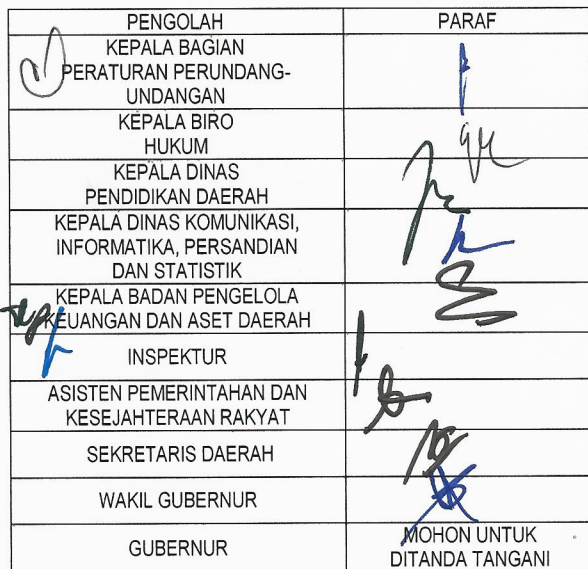 PENGOLAH PARAF
KEPALA BAGIAN
PERATURAN PERUNDANG-
UNDANGAN
KEPALA BIRO
HUKUM
KEPALA DINAS
PENDIDIKAN DAERAH
KEPALA DINAS KOMUNIKASI,
INFORMATIKA, PERSANDIAN
DAN STATISTIK
KEPALA BADAN PENGELOLA
KEUANGAN DAN ASET DAERAH
INSPEKTUR
ASISTEN PEMERINTAHAN DAN
KESEJAHTERAAN RAKYAT
SEKRETARIS DAERAH
WAKIL GUBERNUR
GUBERNUR
MOHON UNTUK
DITANDA TANGANI